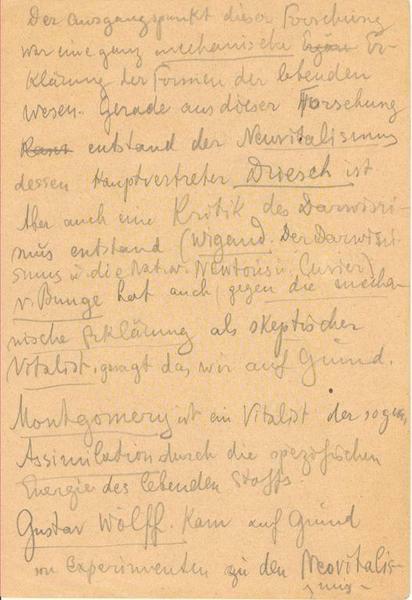 Der Ausgangspunkt dieser Forschung
war eine ganz mechanische Er-
klärung der Formen der lebenden
Wesen. Gerade aus dieser Forschung
entstand der Neuvitalismus
dessen Hauptvertreter Driesch ist
Aber auch eine Kritik des Darwini-
mus entstand (Wigand. Der Darwini-
smus u. die Nat.w. Newtons u. Cuvier)
v. Bunge hat auch gegen die mecha-
nische Erklärung als skeptischer
Vitalist, gesagt das wir auf Grund.
Montgomery ist ein Vitalist der sogen.
Assimilation durch die spezifischen
Energie des lebenden Stoffs.
Gustav Wolff. Kam auf Grund
von Experimenten zu den Neovitalis-
mus